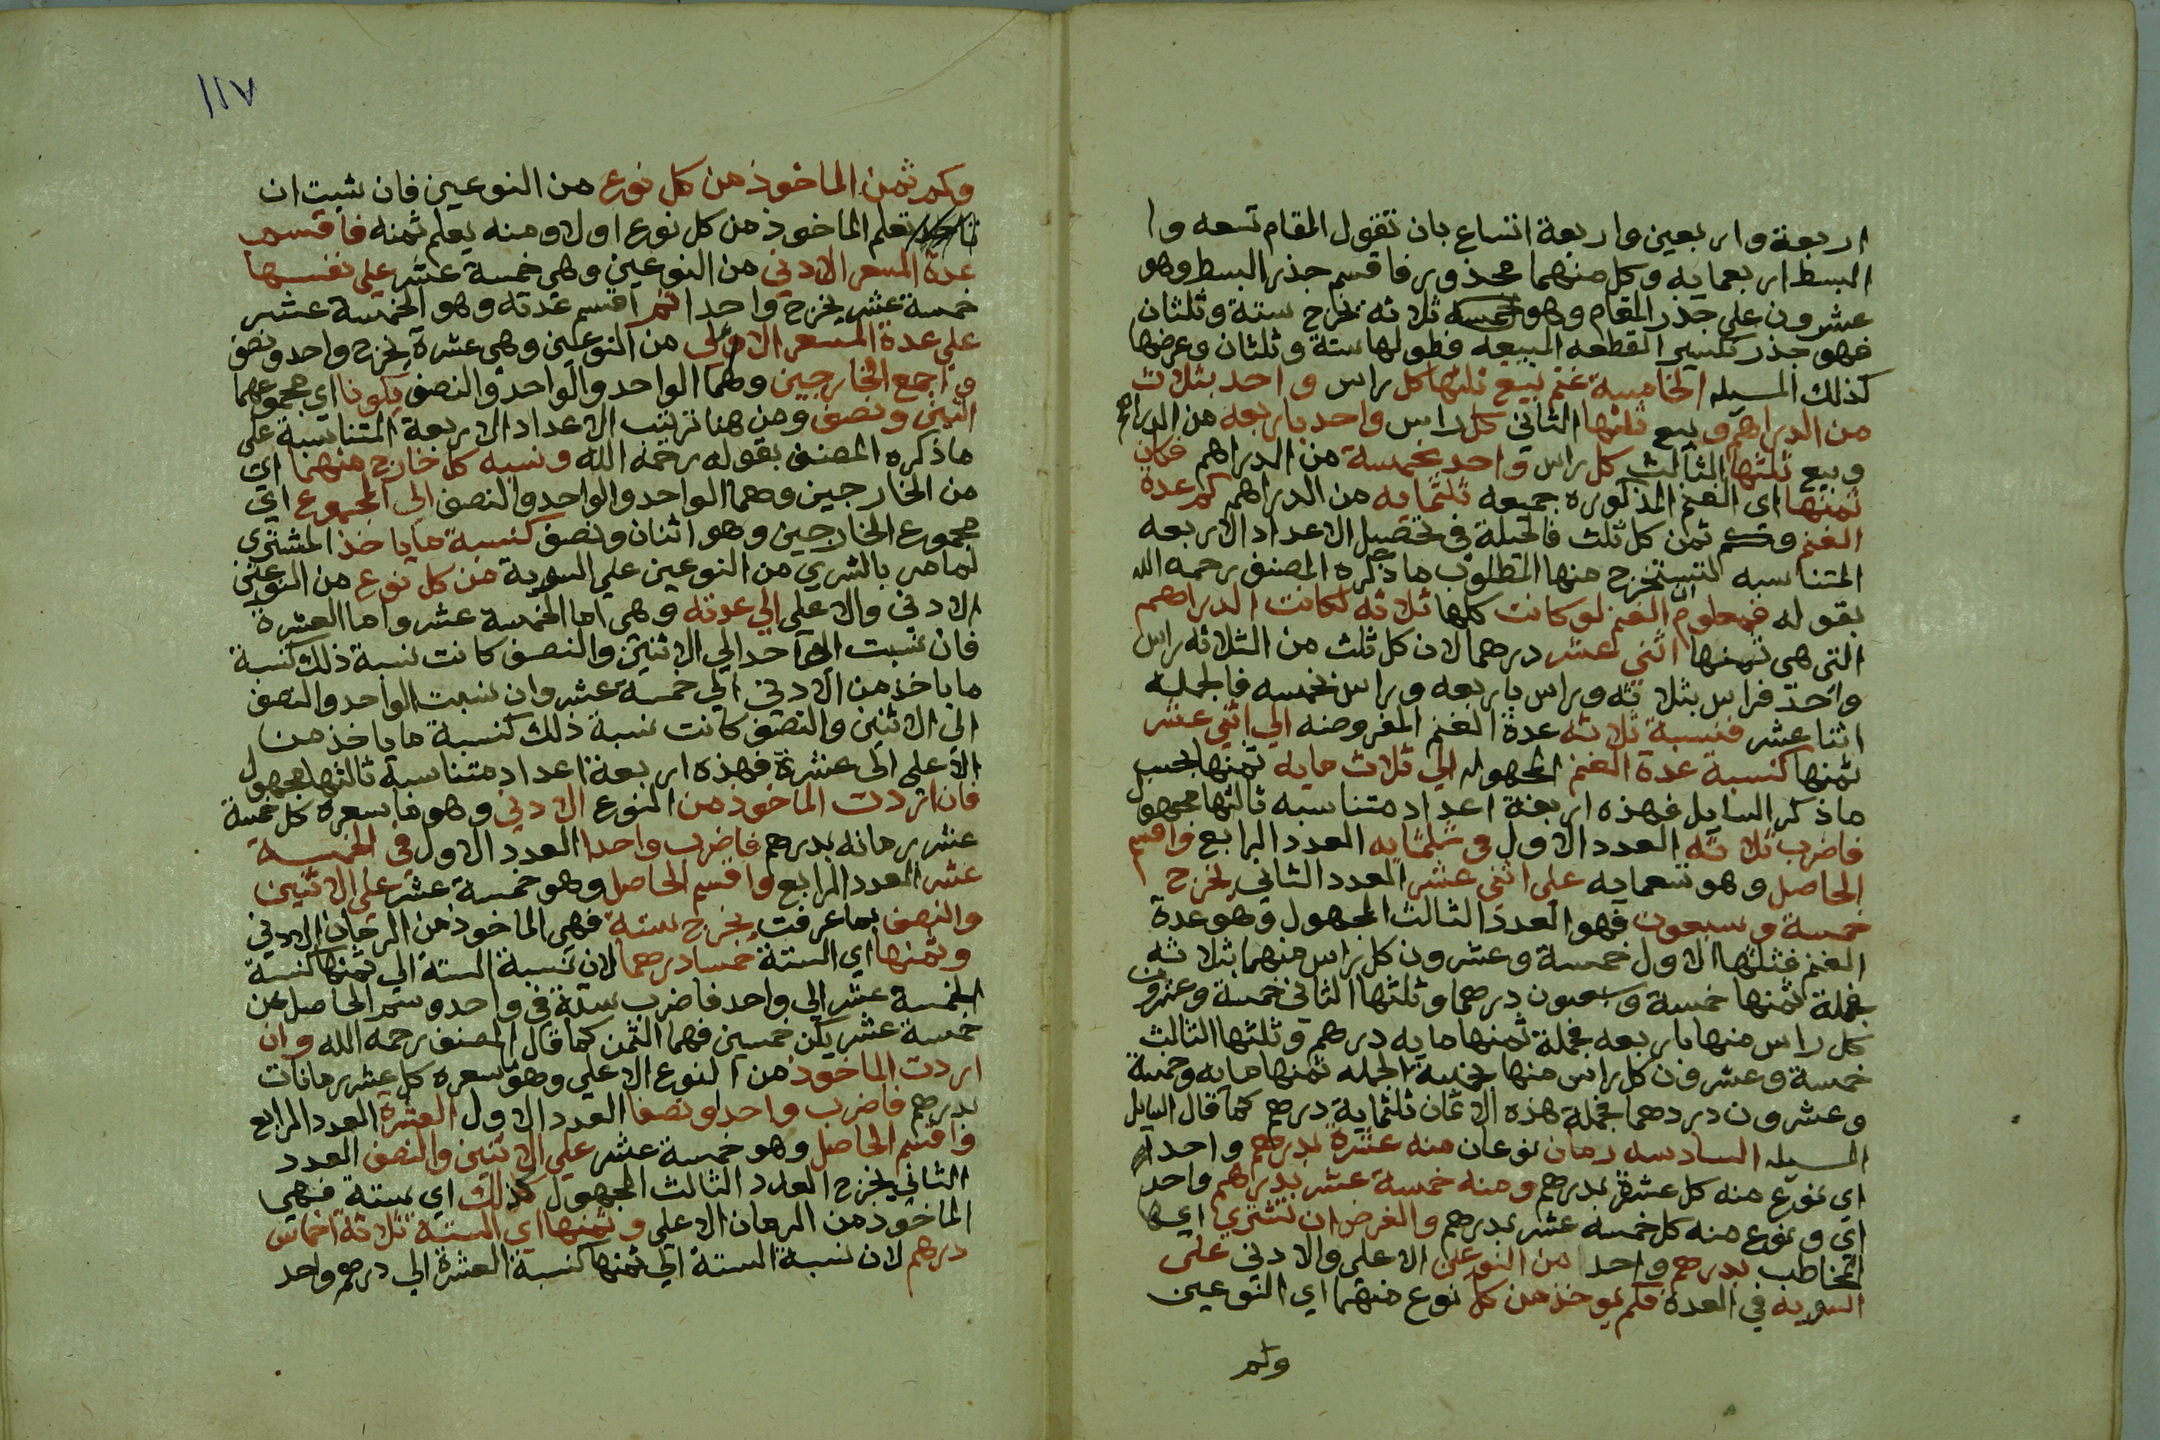 اربعة واربعين واربعة اتساع بان تقول المقام تسعه وا
البسط اربعمايه وكل منهما مجذور فاقسم جذر البسط وهو
عشرون على جذر المقام وهو ثلاثه يخرج ستة وثلثان
فهو جذر تكسير القطعه المبيعه فطولها ستة وثلثان وعرضها
كذلك المسيله الخامسة غنم بيع ثلثها كل راس واحد بثلاث
من الدراهم وبيع ثلثها الثاني كل راس واحد باربعه من الدراهم
وبيع ثلثها الثالث كل راس واحد بخمسة من الدراهم فكان
ثمنها اى الغنم المذكوره جميعه ثلثمايه من الدراهم كم عدة
الغنم وكم ثمن كل ثلث فالحيلة في تحصيل الاعداد الاربعه
المتناسبه لتستخرج منها المطلوب ما ذكره المصنف رحمه الله
بقوله فمعلوم ان الغنم لو كانت كلها ثلاثه لكانت الدراهم
التى هى ثمنها اثني عشر درهما لان كل ثلث من الثلاثه راس
واحد فراس بثلاثه وراس باربعه وراس بخمسه فالجمله
اثنا عشر فنسبة ثلاثه عدة الغنم المفروضه الي اثني عشر
ثمنها كنسبة عدة الغنم المجهوله الي ثلاث مايه ثمنها بحسب
ما ذكر السايل فهذه اربعة اعداد متناسبه ثالثها مجهول
فاضرب ثلاثه العدد الاول في ثلثمايه العدد الرابع واقسم
الحاصل وهو تسعمايه على اثني عشر العدد الثاني يخرج
خمسة وسبعون فهو العدد الثالث المجهول وهو عدة
الغنم فثلثها الاول خمسة وعشرون كل راس منهما بثلاثه
فجملة ثمنها خمسة وسبعون درهما وثلثها الثاني خمسة وعشرون
كل راس منها باربعه فجملة ثمنها مايه درهم وثلثها الثالث
خمسة وعشرون كل راس منها بخمسة الجمله ثمنها مايه وخمسة
وعشرون دردهما فجملة هذه الاثمان ثلثماية درهم كما قال السايل
المسيله السادسه رمان نوعان منه عشرة بدرهم واحد
اى نوع منه كل عشرة بدرهم ومنه خمسة عشر بدراهم واحد
اي ونوع منه كل خمسة عشر بدرهم والغرض ان تشتري ايها
المخاطب بدرهم واحد من النوعين الاعلى والادني على
السويه في العدة فكم يوخذ من كل نوع منهما اي النوعين
وكم
١١٧
وكم ثمن الماخوذ من كل نوع من النوعين فان شيت ان
تعلم الماخوذ من كل نوع اولا ومنه يعلم ثمنه فاقسم
عدة السعر الادني من النوعين وهي خمسة عشر على نفسها
خمسة عشر يخرج واحد اثم اقسم عدته وهو الخمسة عشر
على عدة السعر الاعلى من النوعين وهي عشرة يخرج واحد ونصف
واجمع الخارجين وهما الواحد والواحد والنصف يكونا اي مجموعهما
اثنين ونصف ومن هنا ترتيب الاعداد الاربعة المتناسبة على
ما ذكره المصنف بقوله رحمه الله ونسبه كل خارج منهما اى
من الخارجين وهما الواحد والواحد والنصف الي المجموع اي
مجموع الخارجين وهو اثنان ونصف كنسبة ما ياخذ المشتري
لما مر بالشري من النوعين على السوية من كل نوع من النوعين
الادني والاعلى الي عدته وهي اما الخمسة عشر واما العشرة
فان نسبت الواحد الي الاثنين والنصف كانت نسبة ذلك كنسبة
ما ياخذ من الادني الي خمسة عشر وان نسبت الواحد والنصف
الى الاثنين والنصف كانت نسبة ذلك كنسبة ما ياخذ من
الاعلى الى عشرة فهذه اربعة اعداد متناسبة ثالثها مجهول
فان اردت الماخوذ من النوع الادني وهو ما سعره كل خمسة
عشر رمانه بدرهم فاضرب واحدا العدد الاول في الخمسة
عشر العدد الرابع واقسم الحاصل وهو خمسة عشر على الاثنين
والنصف بما عرفت يخرج ستة فهي الماخوذ من الرمان الادني
وثمنها اي الستة خمسا درهما لان نسبة الستة الي ثمنها كنسبة
الخمسة عشر الي واحد فاضرب ستة في واحد وسم الحاصل من
خمسة عشر يكن خمسين فهما الثمن كما قال المصنف رحمه الله وان
اردت الماخوذ من النوع الاعلي وهو سعره كل عشر رمانات
بدرهم فاضرب واحدا ونصفا العدد الاول العشرة العدد الرابع
واقسم الحاصل وهو خمسة عشر علي الاثنين والنصف العدد
الثاني يخرج العدد الثالث المجهول كذلك اي ستة فهي
الماخوذ من الرمان الاعلي وثمنها اي الستة ثلاثة اخماس
درهم لان نسبة الستة الي ثمنها كنسبة العشرة الي درهم واحد